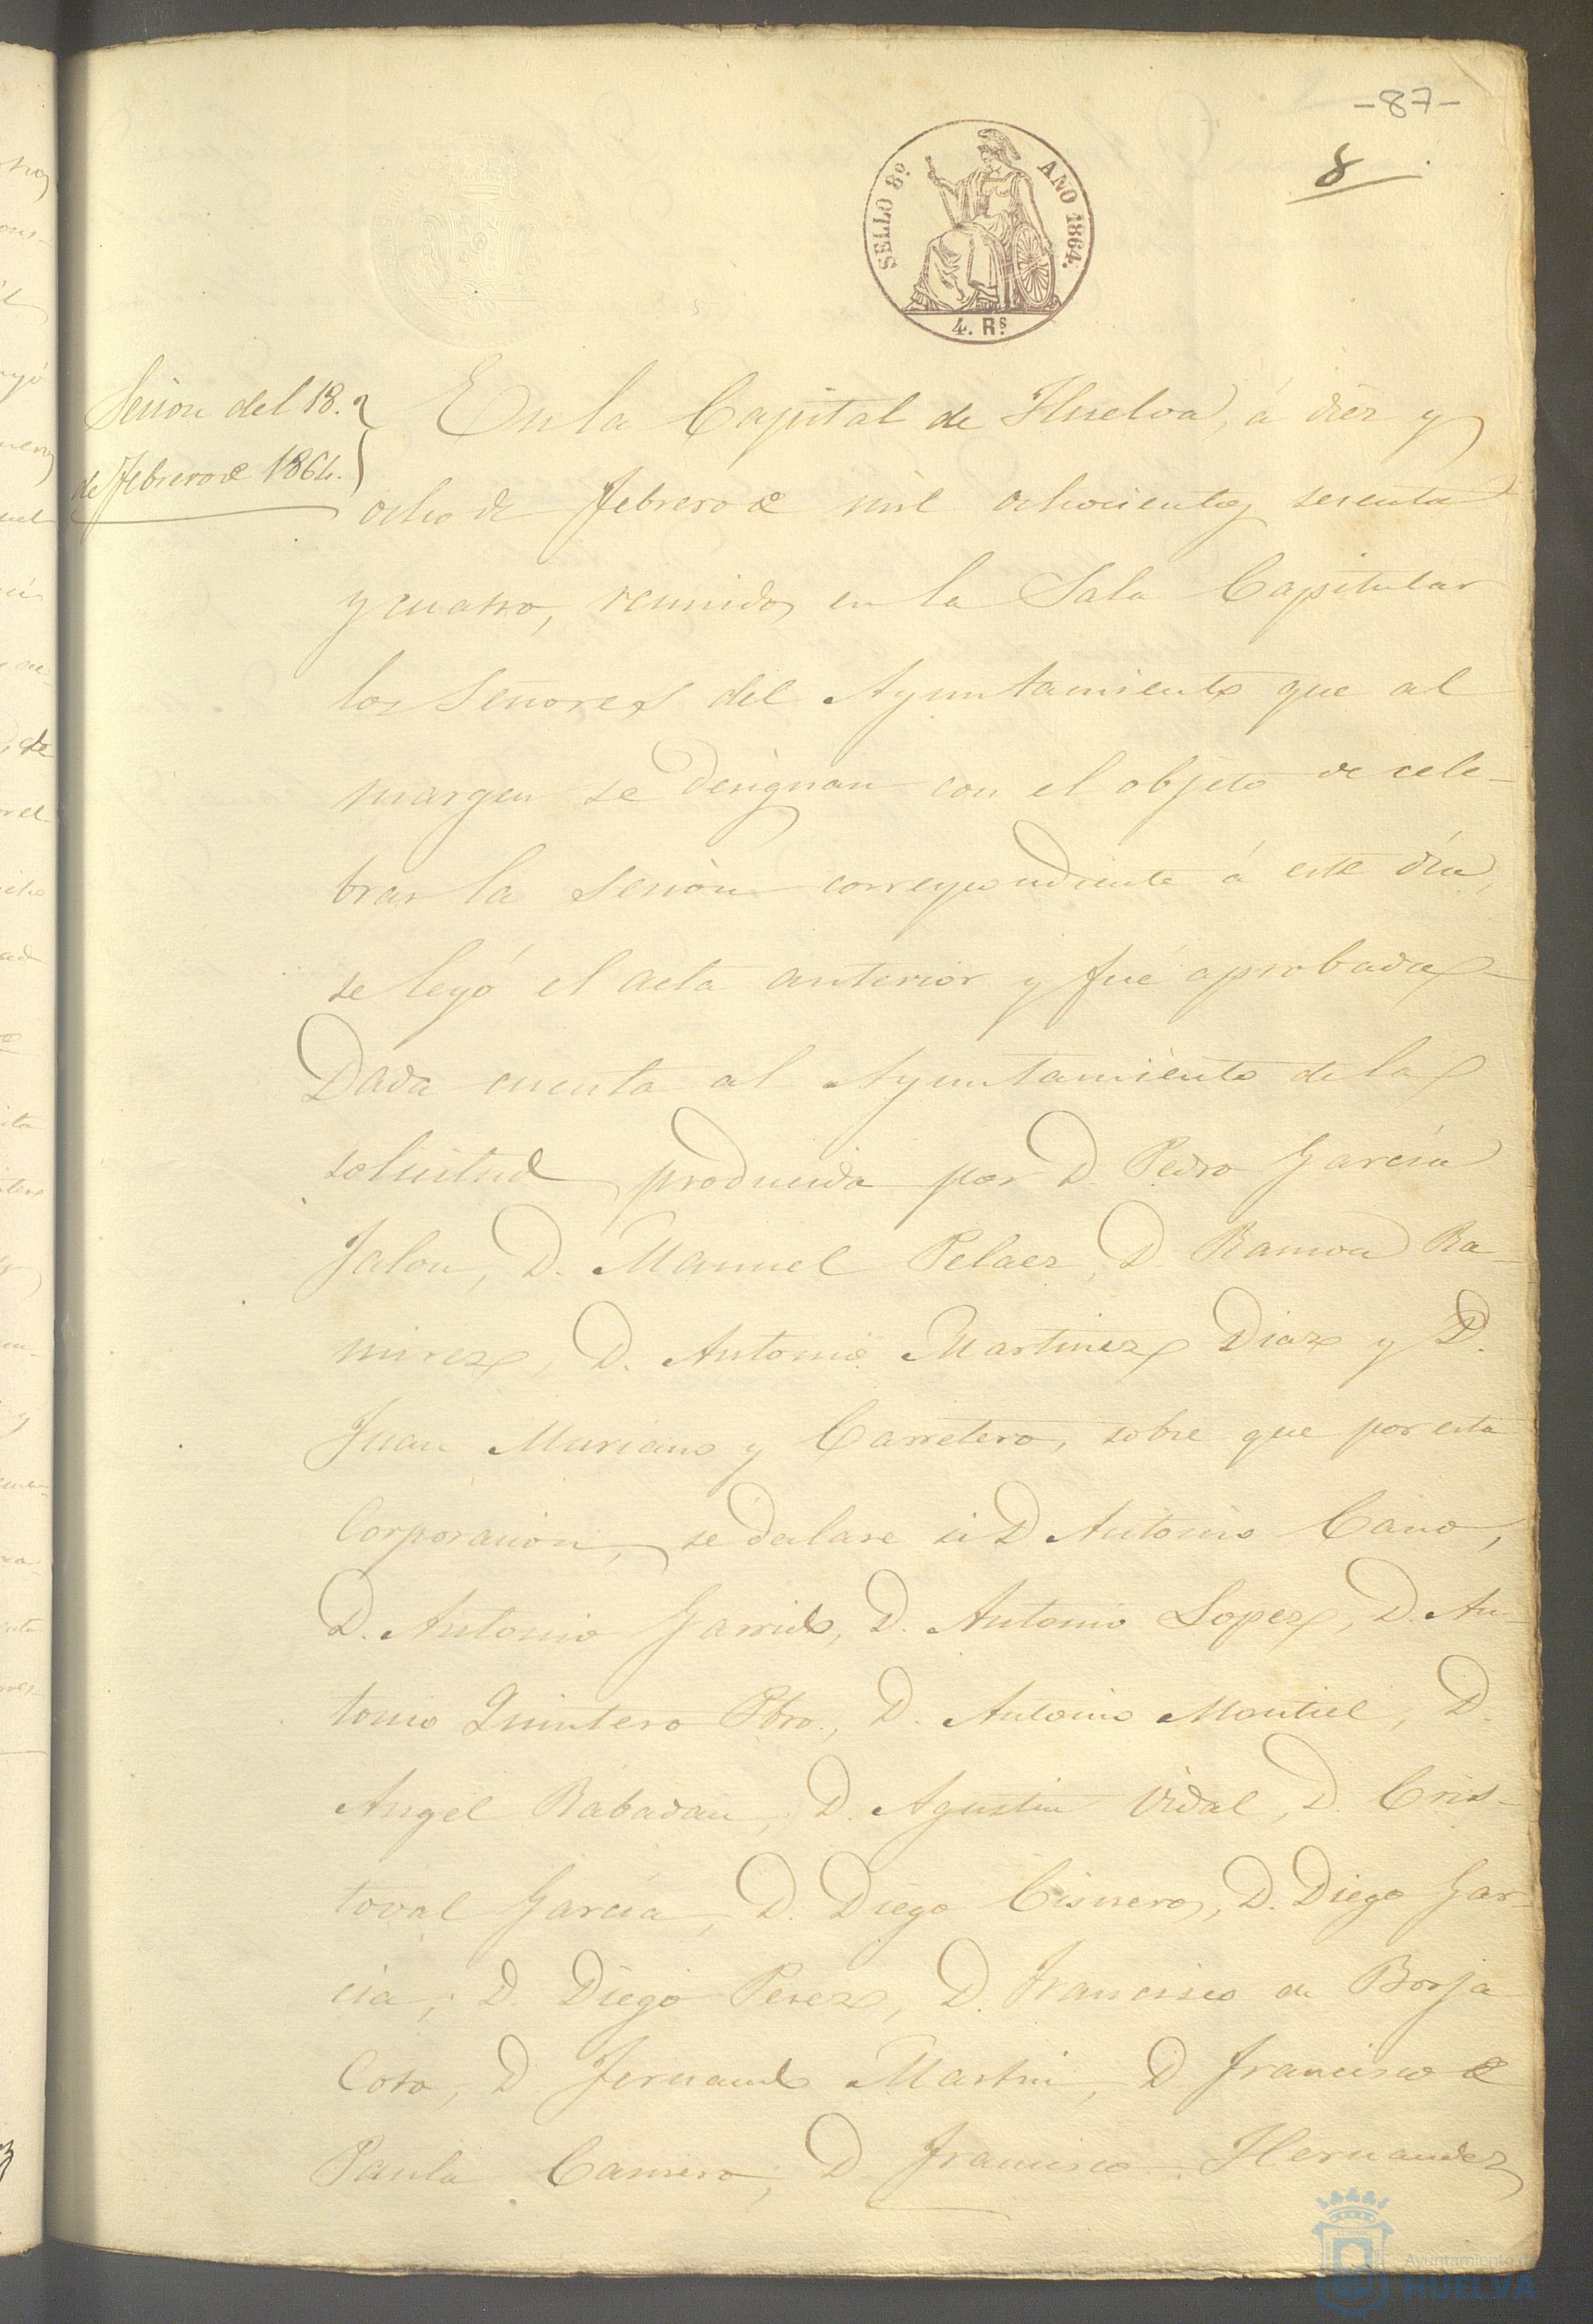 -87-
8
SELLO 8º AÑO 1864.
4. Rs
Sesion del 18.
de Febrero de 1864.
En la Capital de Huelva, á diez y
ocho de Febrero de mil ochocientos sesenta
y cuatro, reunidos en la Sala Capitular
los Señores del Ayuntamiento que al
margen se designan con el objeto de cele-
brar la sesion correspondiente á este dia,
se leyó el acta anterior y fué aprobada
Dada cuenta al Ayuntamiento de la
solicitud producida por D. Pedro García
Jalon, D. Manuel Pelaez, D. Ramon Ra-
mirez, D. Antonio Martinez Diaz y D.
Juan Muriano y Carretero, sobre que por esta
Corporacion, se declare si D Antonio Cano,
D. Antonio Garrido, D. Antonio Lopez, D. An-
tonio Quintero Pbro., D. Antonio Montiel, D.
Angel Rabadan, D. Agustin Vidal, D. Cris-
toval García, D. Diego Cisneros, D. Diego Gar-
cia, D. Diego Perez, D. Francisco de Borja
Coto, D. Fernando Martin, D Francisco de
Paula Carrero, D Francisco Hernandez
Ayuntamiento de
HUELVA